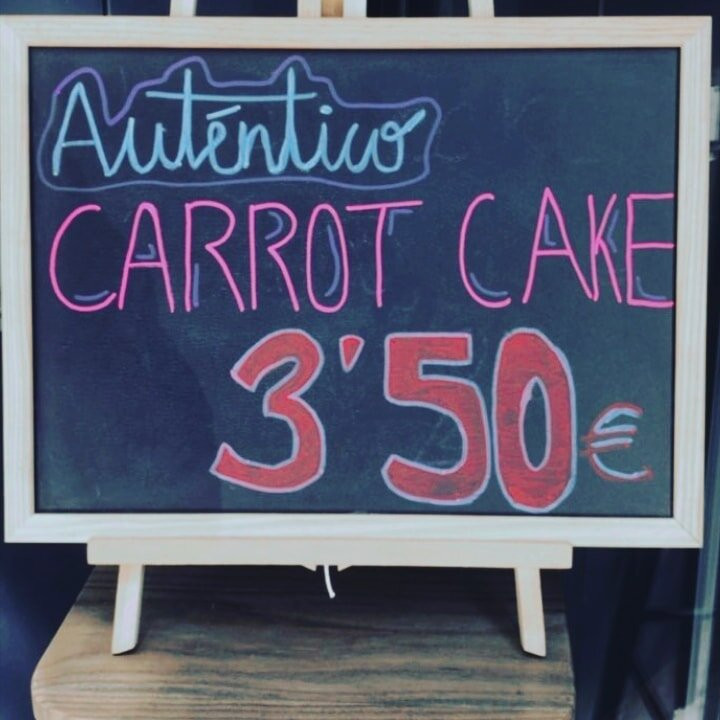 Auténtico
CARROT CAKE
3'50€